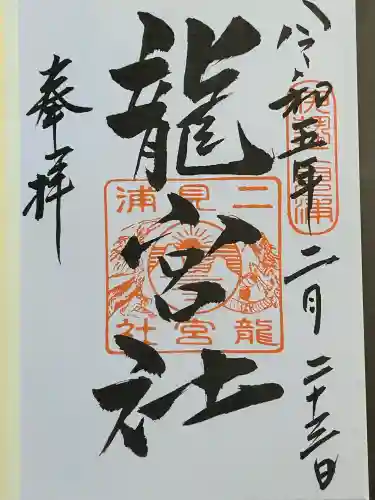 令和五年 二月 二十三日
龍宮社
奉拝
二見浦
龍宮社